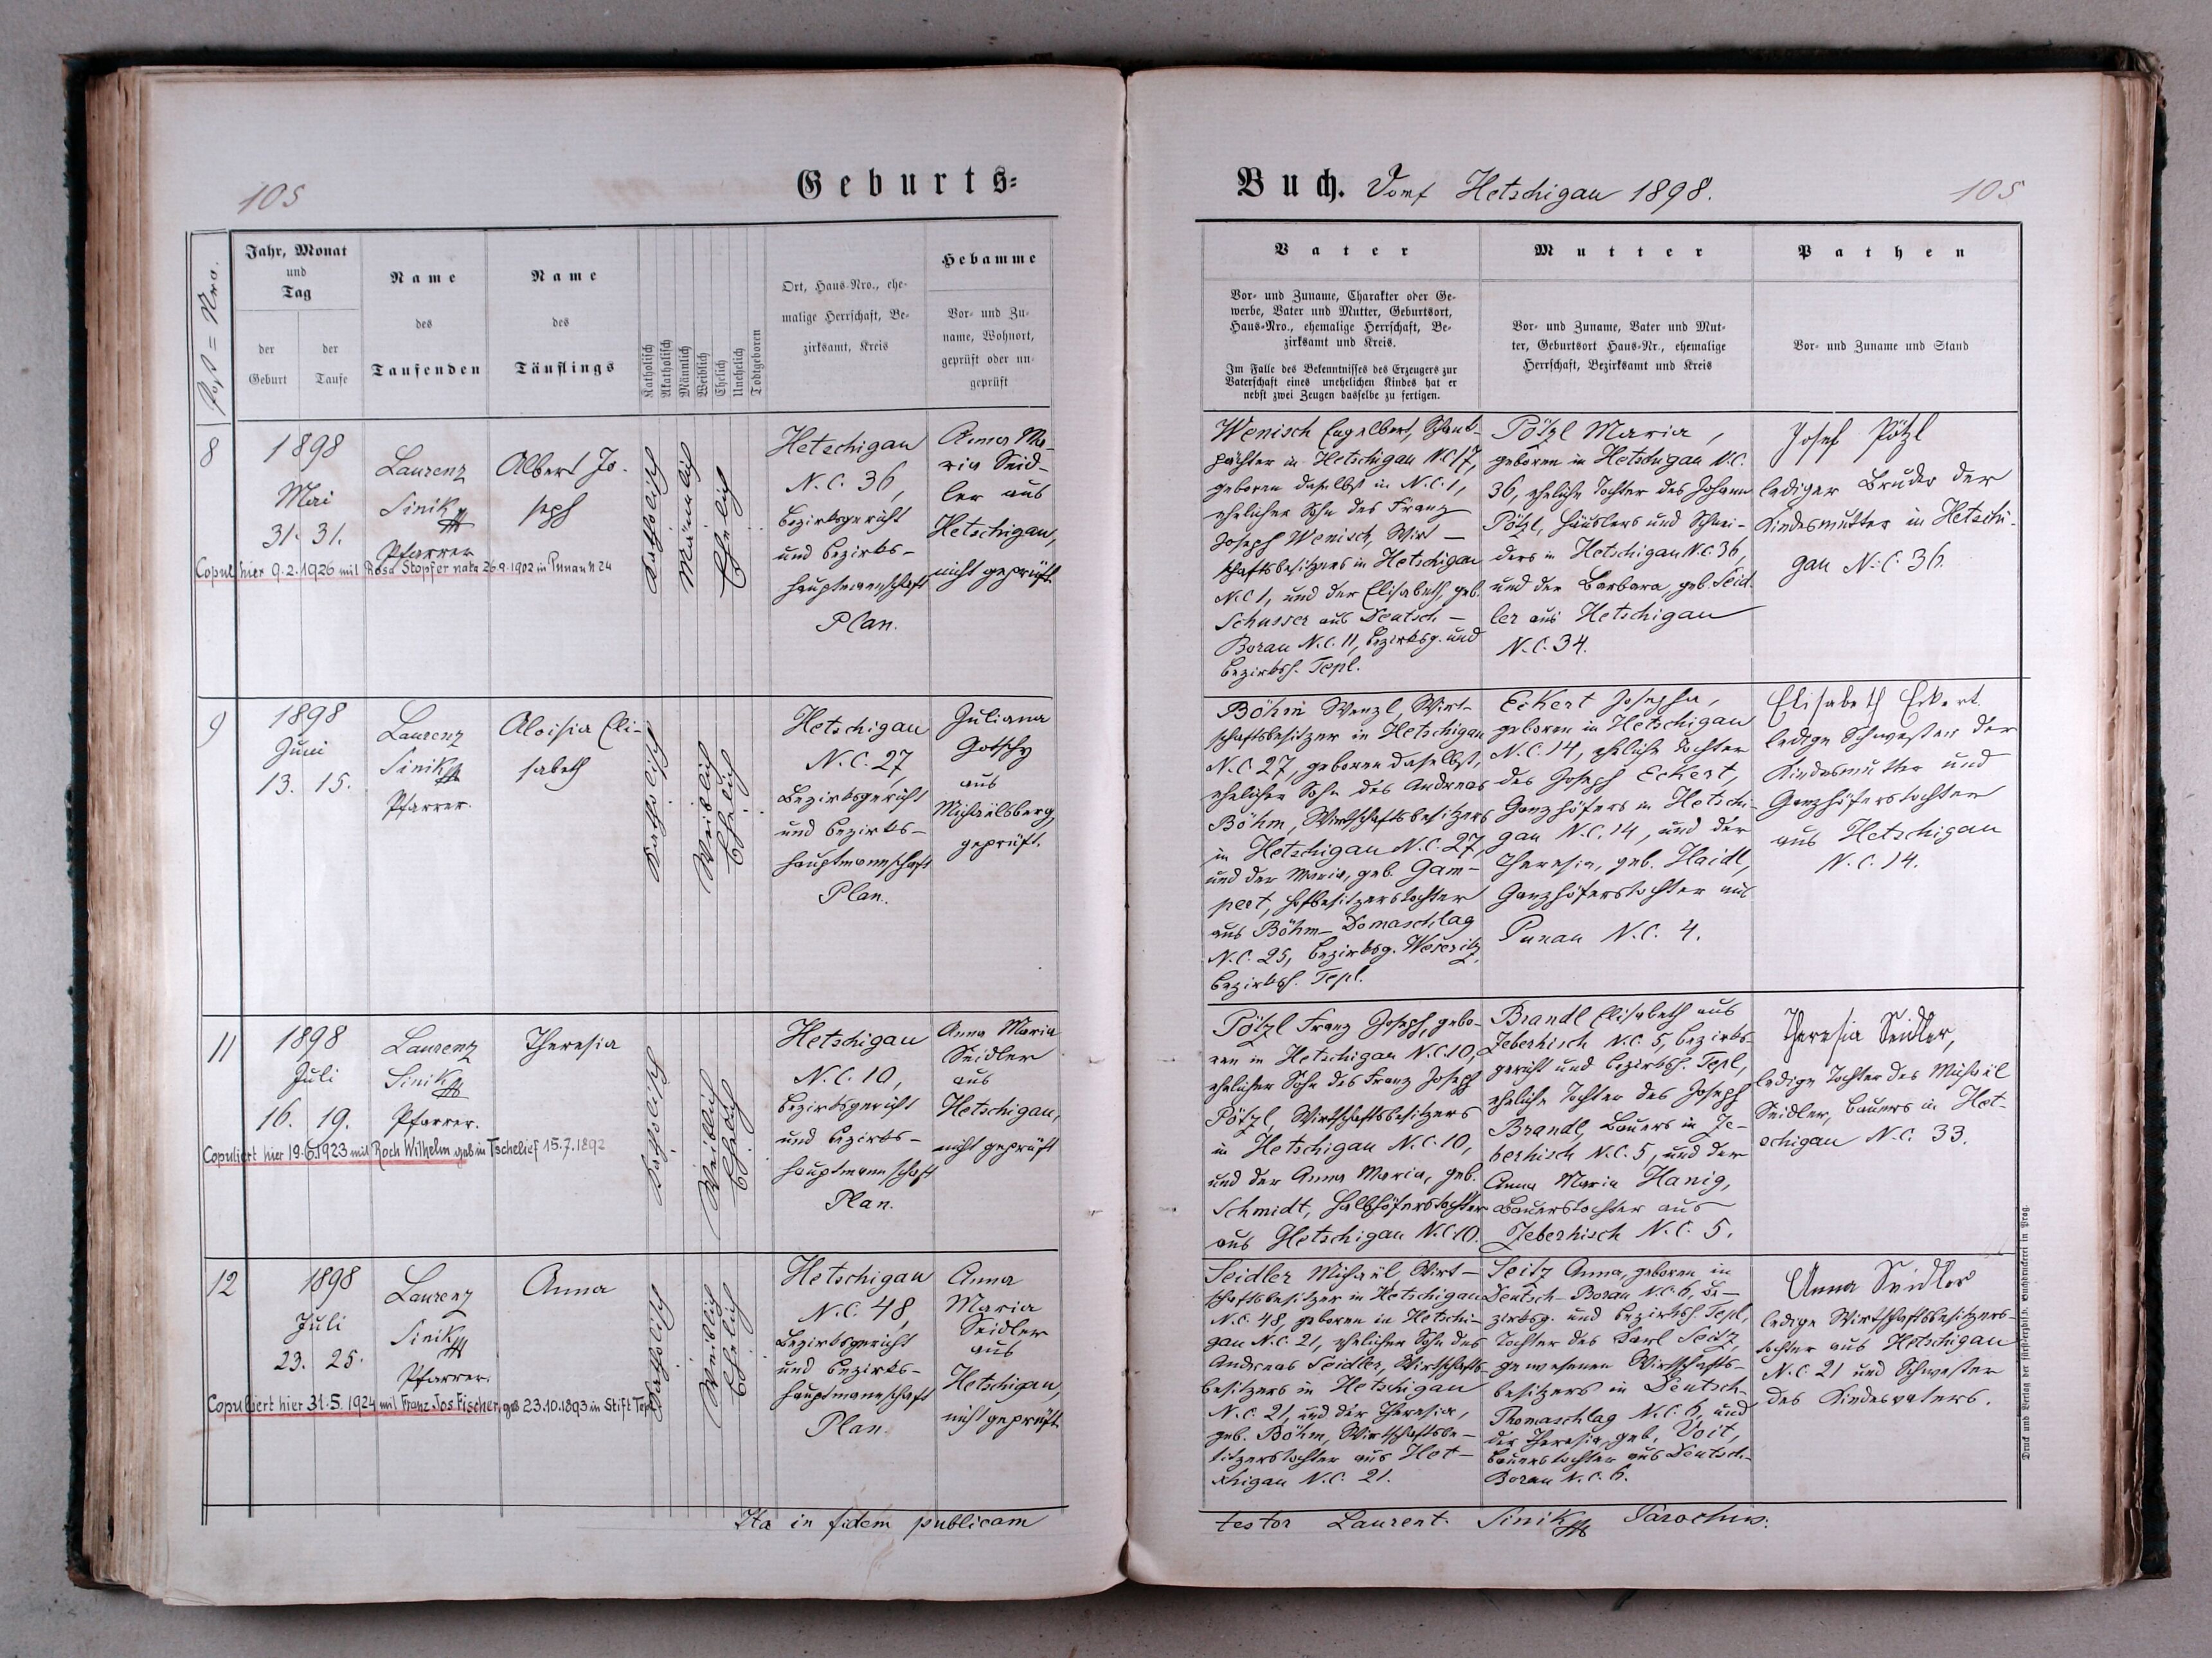 105
Geburts-
Buch. Dorf Hetschigau 1898.
105
Post = Nro.
Jahr, Monat
und
Tag
der
Geburt
der
Taufe
Name
des
Taufenden
Name
des
Täuflings
Katholisch
Akatholisch
Männlich
Weiblich
Ehelich
Unehelich
Todtgeboren
Ort, Haus-Nro., ehe-
malige Herrschaft, Be-
zirksamt, Kreis
Hebamme
Vor- und Zu-
name, Wohnort,
geprüft oder un-
geprüft
Vater
Vor- und Zuname, Charakter oder Ge-
werbe, Vater und Mutter, Geburtsort,
Haus-Nro., ehemalige Herrschaft, Be-
zirksamt und Kreis.
Im Falle des Bekenntnisses des Erzeugers zur
Vaterschaft eines unehelichen Kindes hat er
nebst zwei Zeugen dasselbe zu fertigen.
Mutter
Vor- und Zuname, Vater und Mut-
ter, Geburtsort Haus-Nr., ehemalige
Herrschaft, Bezirksamt und Kreis
Pathen
Vor- und Zuname und Stand
8
1898
Mai
31. 31.
Laurenz
Sinik
Pfarrer
Albert Jo-
seph
Katholisch
Männlich
Ehelich
Hetschigau
N.C. 36,
Bezirksgericht
und Bezirks-
hauptmannschaft
Plan.
Anna Ma-
ria Seid-
ler aus
Hetschigau,
nicht geprüft.
Copul hier 9.2.1926 mit Rosa Stopfer nata 26.9.1902 in Punau N 24
Wenisch Engelbert, Schank-
pächter in Hetschigau NC 17,
geboren daselbst in N.C. 1,
ehelicher Sohn des Franz
Joseph Wenisch, Wirt-
schaftsbesitzers in Hetschigau
N.C 1, und der Elisabeth, geb.
Schusser aus Deutsch-
Borau N.C. 11, Bezirksg. und
Bezirksh. Tepl.
Pötzl Maria,
geboren in Hetschigau N.C.
36, eheliche Tochter des Johann
Pötzl, Häuslers und Schnei-
ders in Hetschigau N.C 36,
und der Barbara, geb. Seid-
ler aus Hetschigau
N.C. 34.
Josef Pötzl
lediger Bruder der
Kindesmutter in Hetschi-
gau N.C. 36.
9
1898
Juni
13. 15.
Laurenz
Sinik
Pfarrer.
Aloisia Eli-
sabeth
Katholisch
Weiblich
Ehelich
Hetschigau
N.C. 27,
Bezirksgericht
und Bezirks-
hauptmannschaft
Plan.
Juliana
Gotschy
aus
Michaelsberg,
geprüft.
Böhm Wenzl, Wirt-
schaftsbesitzer in Hetschigau
N.C 27, geboren daselbst,
ehelicher Sohn des Andreas
Böhm, Wirtschaftsbesitzers
in Hetschigau N.C. 27,
und der Maria, geb. Gam-
pert, Hofbesitzerstochter
aus Böhm-Domaschlag
N.C. 25, Bezirksg. Weseritz,
Bezirksh. Tepl.
Eckert Josepha,
geboren in Hetschigau
N.C. 14, eheliche Tochter
des Joseph Eckert,
Ganzhöfers in Hetschi-
gau N.C. 14, und der
Theresia, geb. Haidl,
Ganzhöferstochter aus
Punau N.C. 4.
Elisabeth Eckert
ledige Schwester der
Kindesmutter und
Ganzhöferstochter
aus Hetschigau
N.C. 14.
11
1898
Juli
16. 19.
Laurenz
Sinik
Pfarrer.
Theresia
Katholisch
Weiblich
Ehelich
Hetschigau
N.C. 10,
Bezirksgericht
und Bezirks-
hauptmannschaft
Plan.
Anna Maria
Seidler
aus
Hetschigau,
nicht geprüft
Copuliert hier 19.6.1923 mit Roch Wilhelm geb in Tschelief 15.7.1892
Pötzl Franz Joseph, gebo-
ren in Hetschigau N.C.10,
ehelicher Sohn des Franz Joseph
Pötzl, Wirtschaftsbesitzers
in Hetschigau N.C. 10,
und der Anna Maria, geb.
Schmidt, Halbhöferstochter
aus Hetschigau N.C.10.
Brandl Elisabeth aus
Jeberhisch N.C. 5, Bezirks-
gericht und Bezirksh. Tepl,
eheliche Tochter des Joseph
Brandl, Bauers in Je-
berhisch N.C. 5, und der
Anna Maria Hanig,
Bauerstochter aus
Jeberhisch N.C. 5.
Theresia Seidler,
ledige Tochter des Michael
Seidler, Bauers in Het-
schigau N.C. 33.
12
1898
Juli
23. 25.
Laurenz
Sinik
Pfarrer.
Anna
Katholisch
Weiblich
Ehelich
Hetschigau
N.C. 48,
Bezirksgericht
und Bezirks-
hauptmannschaft
Plan.
Anna
Maria
Seidler
aus
Hetschigau,
nicht geprüft.
Copuliert hier 31.5.1924 mit Franz Jos Fischer, geb 23.10.1893 in Stift Tepl
Seidler Michael, Wirt-
schaftsbesitzer in Hetschigau
N.C. 48, geboren in Hetschi-
gau N.C. 21, ehelicher Sohn des
Andreas Seidler, Wirtschafts-
besitzers in Hetschigau
N.C. 21, und der Theresia,
geb. Böhm, Wirtschaftsbe-
sitzerstochter aus Het-
schigau N.C. 21.
Seitz Anna, geboren in
Deutsch-Borau N.C. 6, Be-
zirksg. und Bezirksh. Tepl,
Tochter des Karl Seitz,
gewesenen Wirtschafts-
besitzers in Deutsch-
Thomaschlag N.C. 6, und
der Theresia, geb. Voit,
Bauerstochter aus Deutsch-
Borau N.C. 6.
Anna Seidler
ledige Wirtschaftsbesitzers-
tochter aus Hetschigau
N.C. 21 und Schwester
des Kindesvaters.
Ita in fidem publicam
testor Laurent. Sinik Parochus.
Druck und Verlag der fürsterzbisch. Buchdruckerei in Prag.